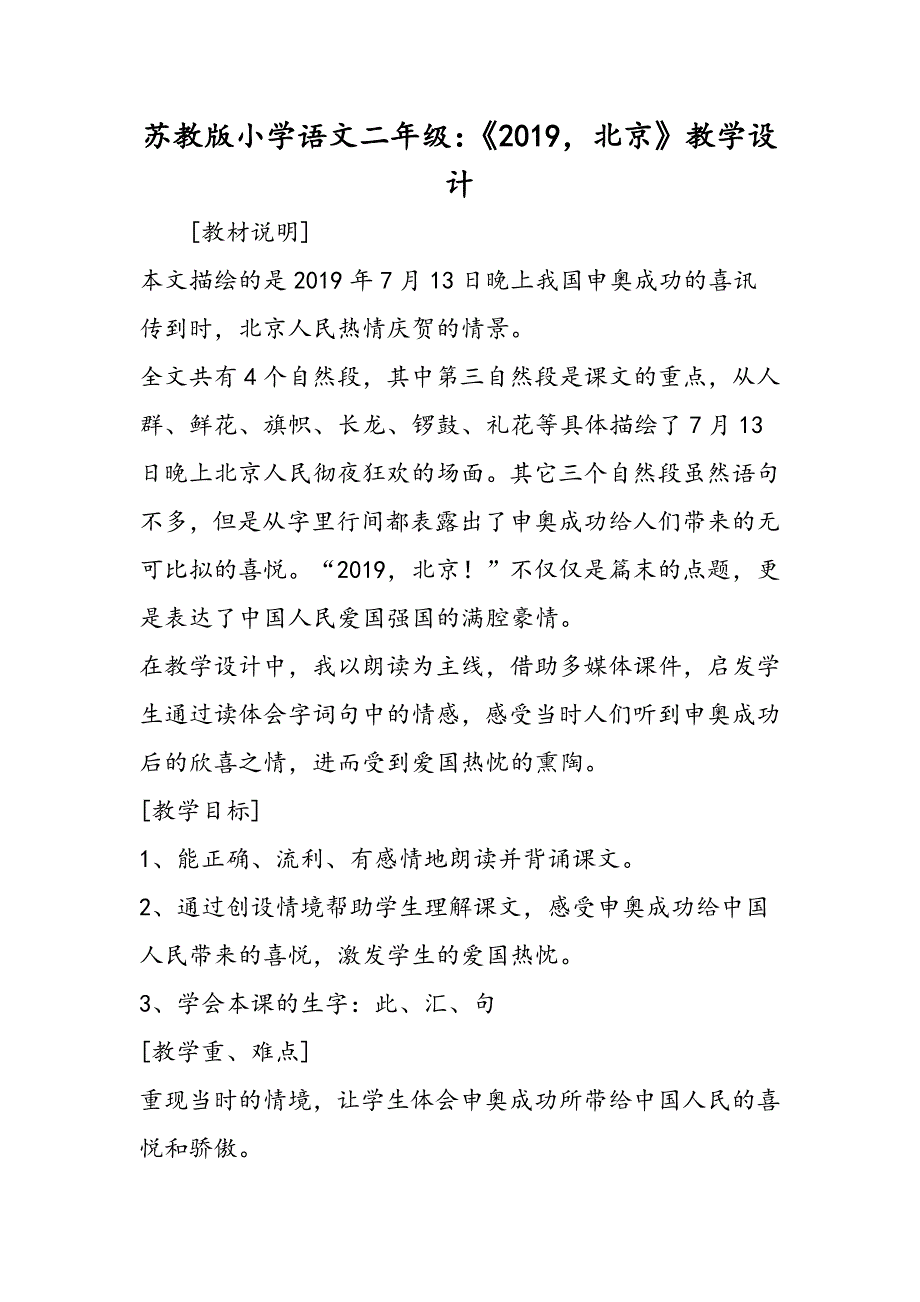 苏教版小学语文二年级：《2019，北京》教学设
计
[教材说明]
本文描绘的是2019年7月13日晚上我国申奥成功的喜讯
传到时，北京人民热情庆贺的情景。
全文共有4个自然段，其中第三自然段是课文的重点，从人
群、鲜花、旗帜、长龙、锣鼓、礼花等具体描绘了7月13
日晚上北京人民彻夜狂欢的场面。其它三个自然段虽然语句
不多，但是从字里行间都表露出了申奥成功给人们带来的无
可比拟的喜悦。“2019，北京！”不仅仅是篇末的点题，更
是表达了中国人民爱国强国的满腔豪情。
在教学设计中，我以朗读为主线，借助多媒体课件，启发学
生通过读体会字词句中的情感，感受当时人们听到申奥成功
后的欣喜之情，进而受到爱国热忱的熏陶。
[教学目标]
1、能正确、流利、有感情地朗读并背诵课文。
2、通过创设情境帮助学生理解课文，感受申奥成功给中国
人民带来的喜悦，激发学生的爱国热忱。
3、学会本课的生字：此、汇、句
[教学重、难点]
重现当时的情境，让学生体会申奥成功所带给中国人民的喜
悦和骄傲。